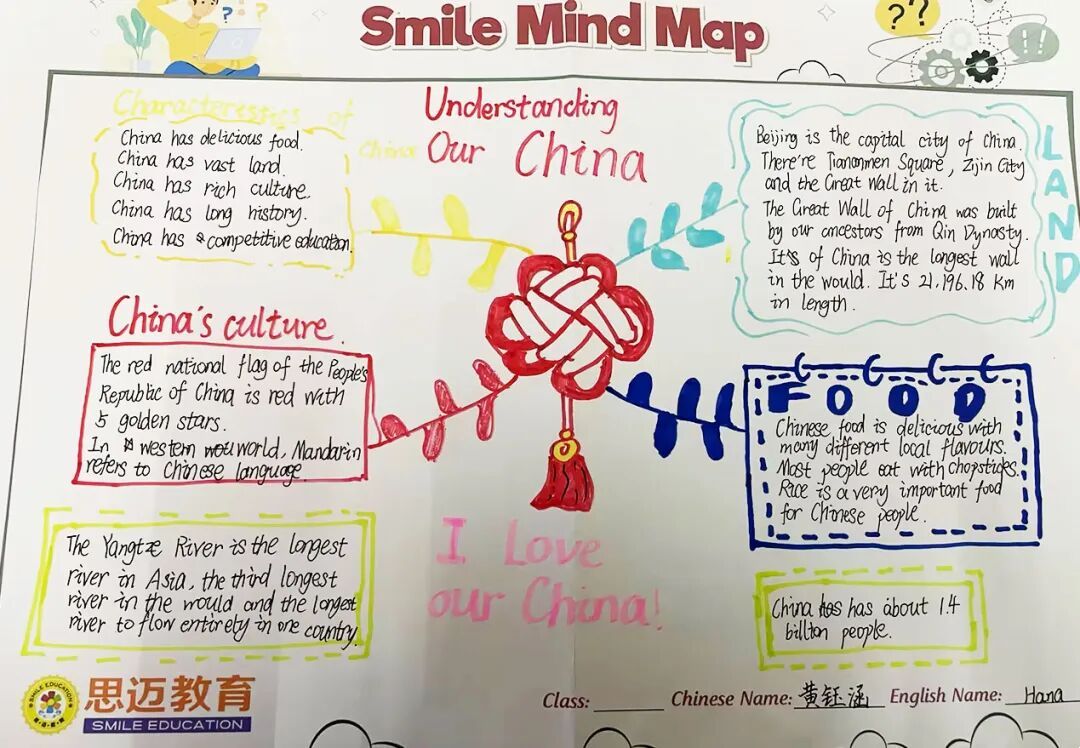 Smile Mind Map
??
!!
Understanding
Our China
Characteristics of
China
China has delicious food.
China has vast land.
China has rich culture.
China has long history.
China has competitive education.
LAND
Beijing is the capital city of China.
There're Tiananmen Square, Zijin City
and the Great Wall in it.
The Great Wall of China was built
by our ancestors from Qin Dynasty.
It's of China is the longest wall
in the would. It's 21,196.18 Km
in length.
China's culture.
The red national flag of the People's
Republic of China is red with
5 golden stars.
In western world, Mandarin
refers to Chinese language.
FOOD
Chinese food is delicious with
many different local flavours.
Most people eat with chopsticks.
Rice is a very important food
for Chinese people.
The Yangtze River is the longest
river in Asia, the third longest
river in the would and the longest
river to flow entirely in one country.
I Love
our China!
China has has about 1.4
billion people.
SMILE EDUCATION
思迈教育
SMILE EDUCATION
Class:
Chinese Name: 黄钰涵
English Name: Hana